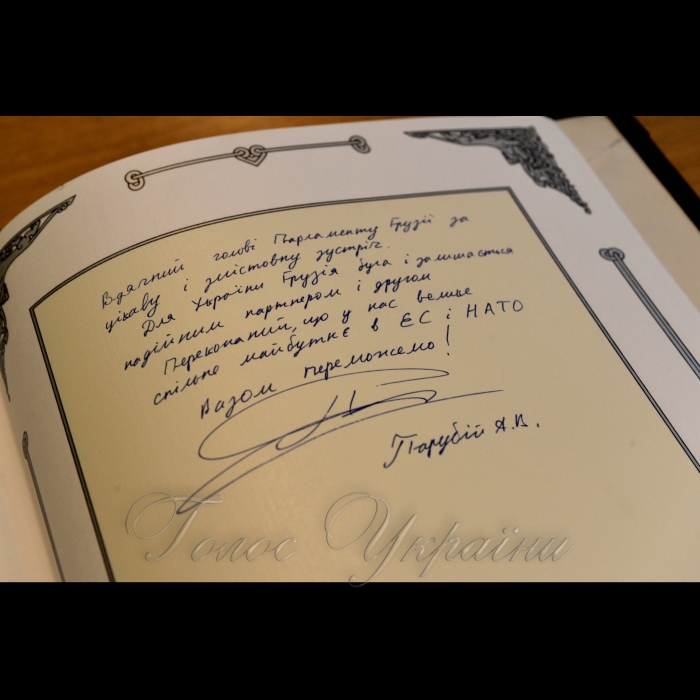 Вдячний голові Парламенту Грузії за
цікаву і змістовну зустріч.
Для України Грузія була і залишається
надійним партнером і другом
Переконаний, що у нас велике
спільне майбутнє в ЄС і НАТО
Разом переможемо!
Парубій А.В.
Голос України